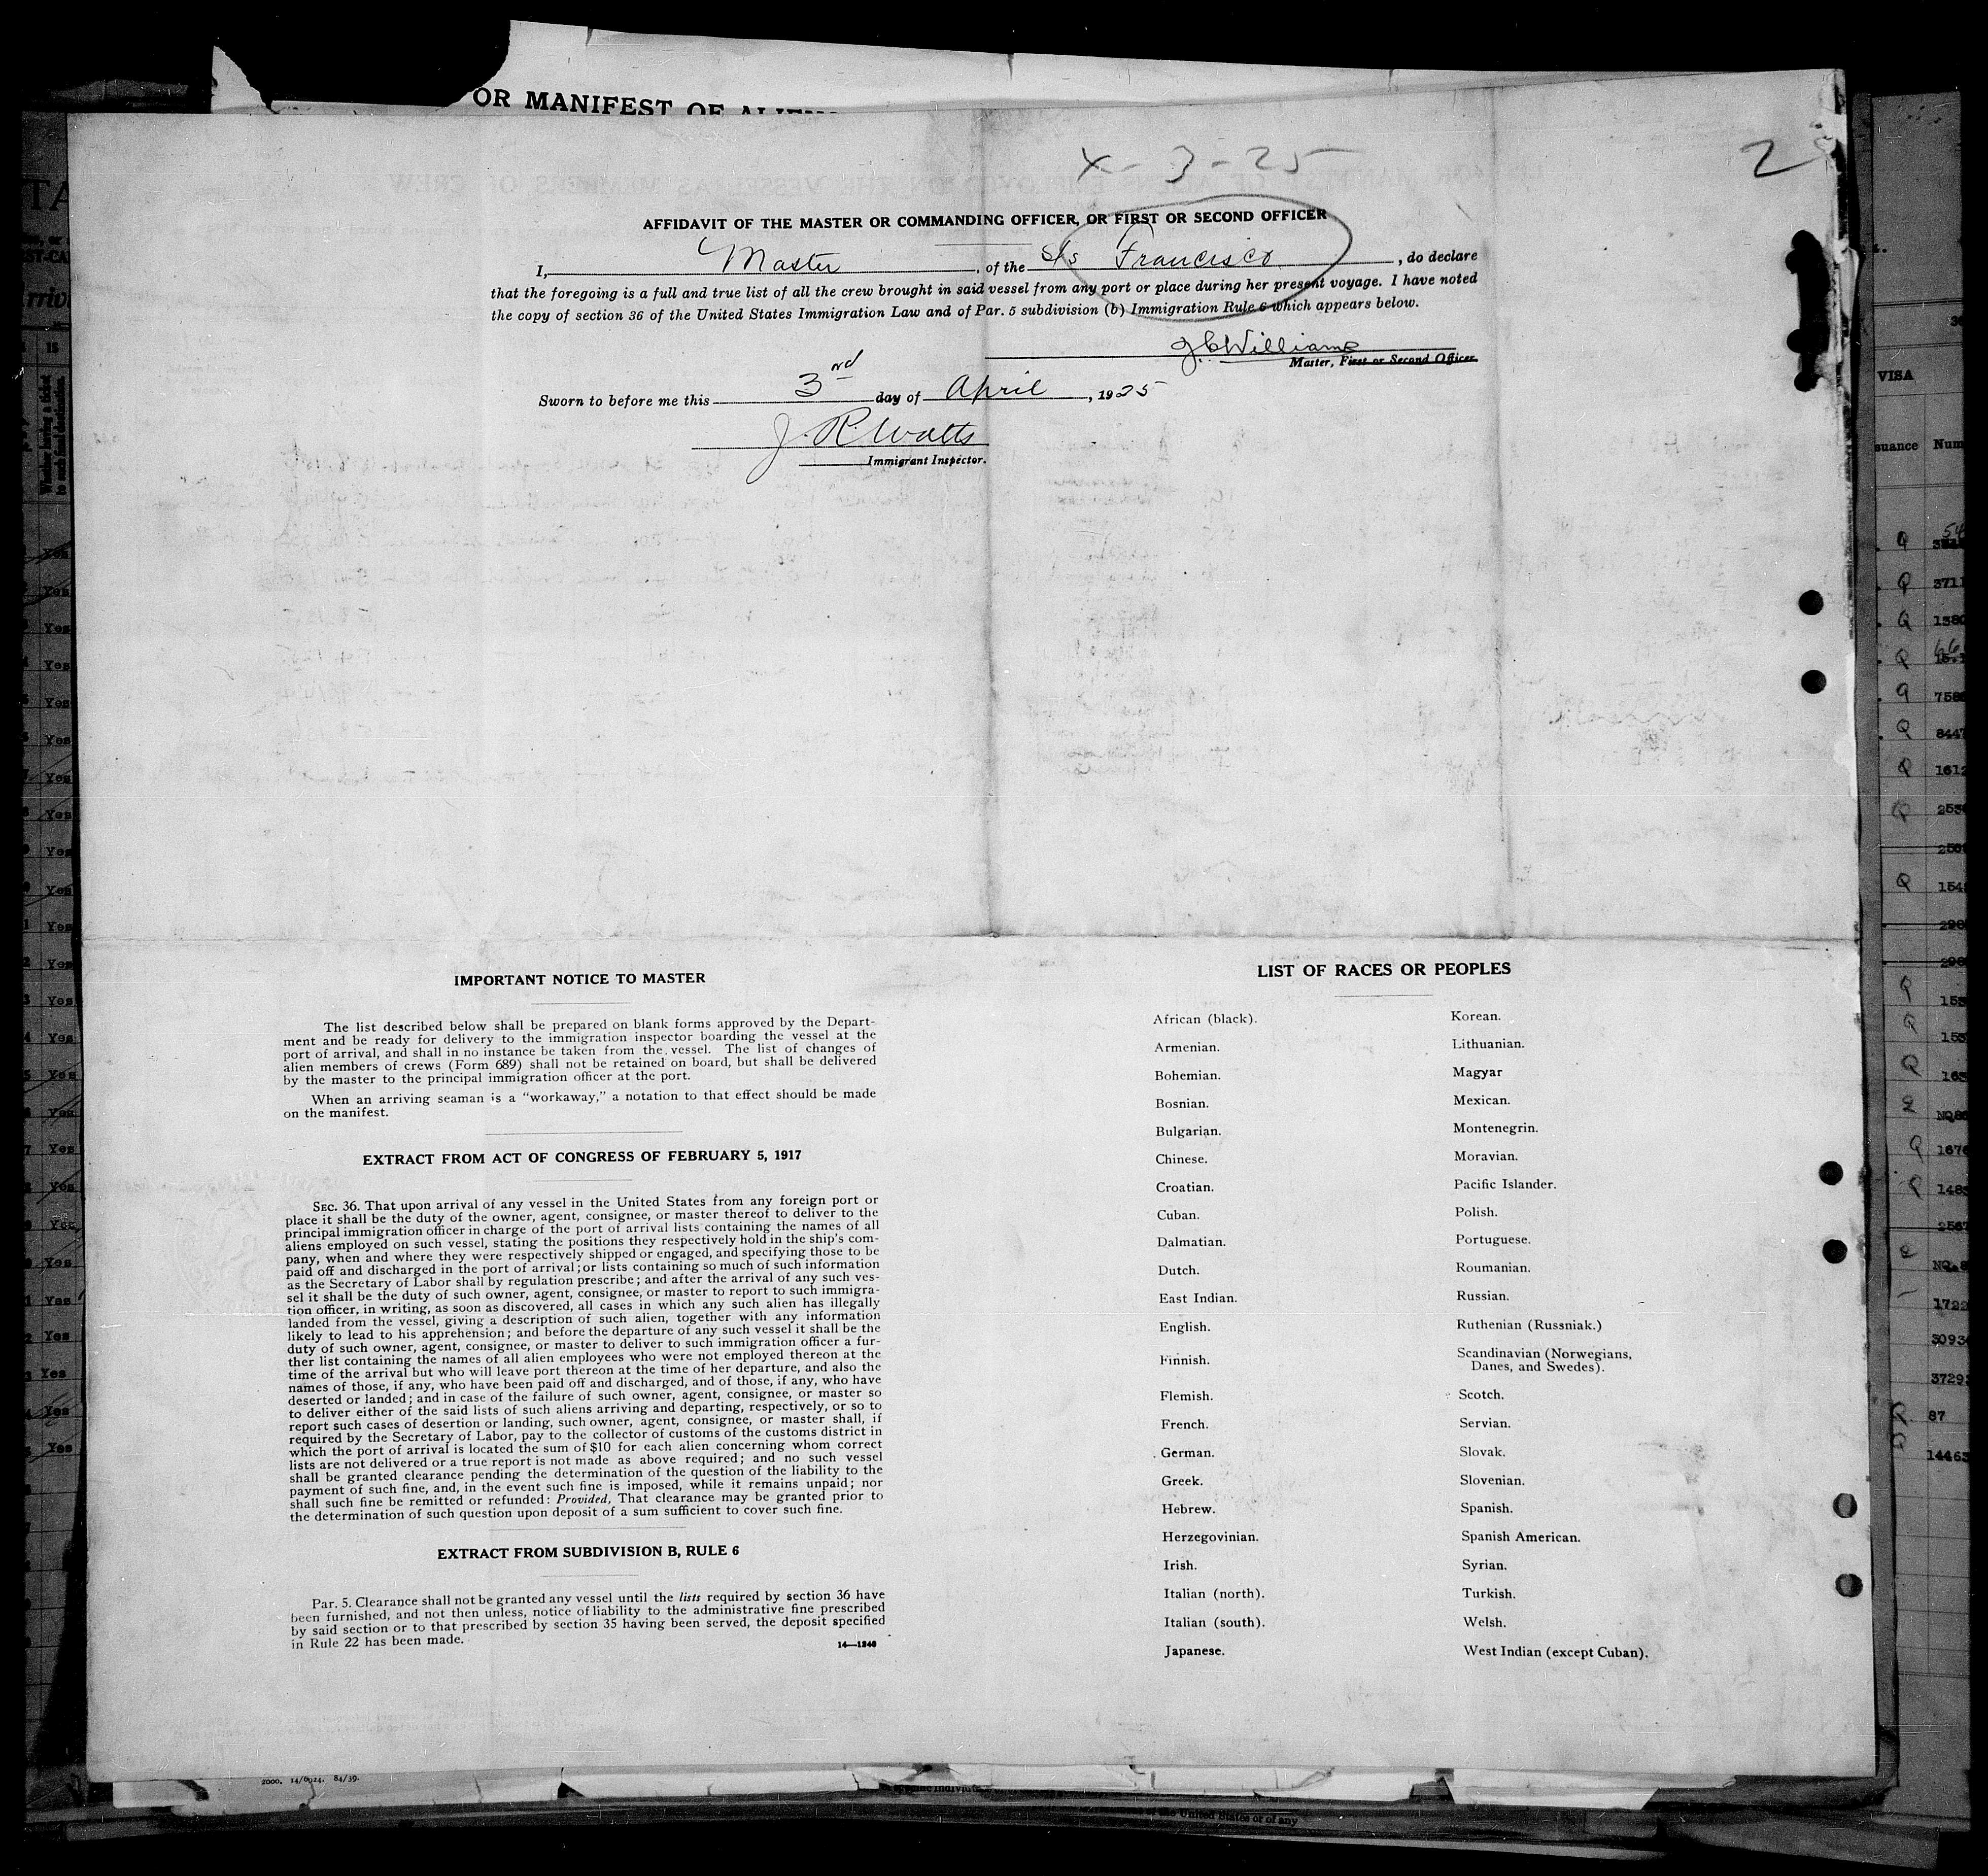 OR MANIFEST OF ALIEN
4-3-25
2
AFFIDAVIT OF THE MASTER OR COMMANDING OFFICER, OR FIRST OR SECOND OFFICER
I, Master, of the S/s Francisco, do declare
that the foregoing is a full and true list of all the crew brought in said vessel from any port or place during her present voyage. I have noted
the copy of section 36 of the United States Immigration Law and of Par. 5 subdivision (b) Immigration Rule 6 which appears below.
J.C. Williams
Master, First or Second Officer.
Sworn to before me this 3rd day of April, 1925
J. R. Watts
Immigrant Inspector.
IMPORTANT NOTICE TO MASTER
The list described below shall be prepared on blank forms approved by the Depart-
ment and be ready for delivery to the immigration inspector boarding the vessel at the
port of arrival, and shall in no instance be taken from the vessel. The list of changes of
alien members of crews (Form 689) shall not be retained on board, but shall be delivered
by the master to the principal immigration officer at the port.
When an arriving seaman is a "workaway," a notation to that effect should be made
on the manifest.
EXTRACT FROM ACT OF CONGRESS OF FEBRUARY 5, 1917
SEC. 36. That upon arrival of any vessel in the United States from any foreign port or
place it shall be the duty of the owner, agent, consignee, or master thereof to deliver to the
principal immigration officer in charge of the port of arrival lists containing the names of all
aliens employed on such vessel, stating the positions they respectively hold in the ship's com-
pany, when and where they were respectively shipped or engaged, and specifying those to be
paid off and discharged in the port of arrival; or lists containing so much of such information
as the Secretary of Labor shall by regulation prescribe; and after the arrival of any such ves-
sel it shall be the duty of such owner, agent, consignee, or master to report to such immigra-
tion officer, in writing, as soon as discovered, all cases in which any such alien has illegally
landed from the vessel, giving a description of such alien, together with any information
likely to lead to his apprehension; and before the departure of any such vessel it shall be the
duty of such owner, agent, consignee, or master to deliver to such immigration officer a fur-
ther list containing the names of all alien employees who were not employed thereon at the
time of the arrival but who will leave port thereon at the time of her departure, and also the
names of those, if any, who have been paid off and discharged, and of those, if any, who have
deserted or landed; and in case of the failure of such owner, agent, consignee, or master so
to deliver either of the said lists of such aliens arriving and departing, respectively, or so to
report such cases of desertion or landing, such owner, agent, consignee, or master shall, if
required by the Secretary of Labor, pay to the collector of customs of the customs district in
which the port of arrival is located the sum of $10 for each alien concerning whom correct
lists are not delivered or a true report is not made as above required; and no such vessel
shall be granted clearance pending the determination of the question of the liability to the
payment of such fine, and, in the event such fine is imposed, while it remains unpaid; nor
shall such fine be remitted or refunded: Provided, That clearance may be granted prior to
the determination of such question upon deposit of a sum sufficient to cover such fine.
EXTRACT FROM SUBDIVISION B, RULE 6
Par. 5. Clearance shall not be granted any vessel until the lists required by section 36 have
been furnished, and not then unless, notice of liability to the administrative fine prescribed
by said section or to that prescribed by section 35 having been served, the deposit specified
in Rule 22 has been made.
14—1240
LIST OF RACES OR PEOPLES
African (black).
Armenian.
Bohemian.
Bosnian.
Bulgarian.
Chinese.
Croatian.
Cuban.
Dalmatian.
Dutch.
East Indian.
English.
Finnish.
Flemish.
French.
German.
Greek.
Hebrew.
Herzegovinian.
Irish.
Italian (north).
Italian (south).
Japanese.
Korean.
Lithuanian.
Magyar
Mexican.
Montenegrin.
Moravian.
Pacific Islander.
Polish.
Portuguese.
Roumanian.
Russian.
Ruthenian (Russniak.)
Scandinavian (Norwegians,
Danes, and Swedes).
Scotch.
Servian.
Slovak.
Slovenian.
Spanish.
Spanish American.
Syrian.
Turkish.
Welsh.
West Indian (except Cuban).
VISA